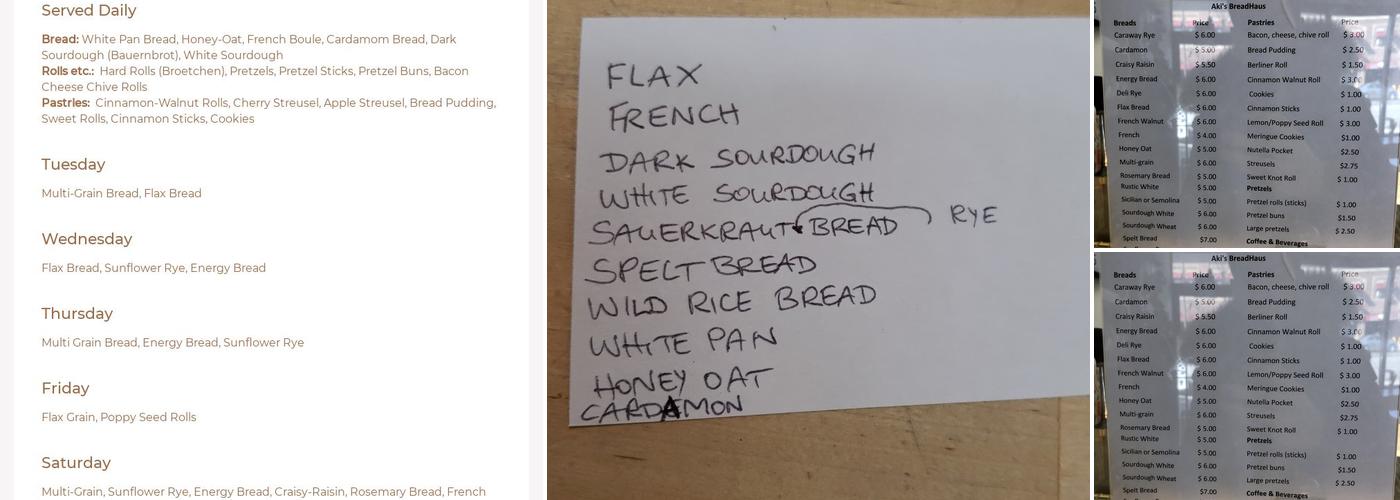 Served Daily
Bread: White Pan Bread, Honey-Oat, French Boule, Cardamom Bread, Dark
Sourdough (Bauernbrot), White Sourdough
Rolls etc.: Hard Rolls (Broetchen), Pretzels, Pretzel Sticks, Pretzel Buns, Bacon
Cheese Chive Rolls
Pastries: Cinnamon-Walnut Rolls, Cherry Streusel, Apple Streusel, Bread Pudding,
Sweet Rolls, Cinnamon Sticks, Cookies
Tuesday
Multi-Grain Bread, Flax Bread
Wednesday
Flax Bread, Sunflower Rye, Energy Bread
Thursday
Multi Grain Bread, Energy Bread, Sunflower Rye
Friday
Flax Grain, Poppy Seed Rolls
Saturday
Multi-Grain, Sunflower Rye, Energy Bread, Craisy-Raisin, Rosemary Bread, French
FLAX
FRENCH
DARK SOURDOUGH
WHITE SOURDOUGH
SAUERKRAUT BREAD RYE
SPELT BREAD
WILD RICE BREAD
WHITE PAN
HONEY OAT
CARDAMON
Aki's BreadHaus
Breads Price Pastries Price
Caraway Rye $ 6.00 Bacon, cheese, chive roll $ 3.00
Cardamon $ 5.00 Bread Pudding $ 2.50
Craisy Raisin $ 5.50 Berliner Roll $ 1.50
Energy Bread $ 6.00 Cinnamon Walnut Roll $ 3.00
Deli Rye $ 6.00 Cookies $ 1.00
Flax Bread $ 6.00 Cinnamon Sticks $ 1.00
French Walnut $ 6.00 Lemon/Poppy Seed Roll $ 3.00
French $ 4.00 Meringue Cookies $1.00
Honey Oat $ 5.00 Nutella Pocket $2.50
Multi-grain $ 6.00 Streusels $2.75
Rosemary Bread $ 5.00 Sweet Knot Roll $ 1.00
Rustic White $ 5.00 Pretzels
Sicilian or Semolina $ 5.00 Pretzel rolls (sticks) $ 1.00
Sourdough White $ 6.00 Pretzel buns $1.50
Sourdough Wheat $ 6.00 Large pretzels $ 2.50
Spelt Bread $7.00 Coffee & Beverages
Aki's BreadHaus
Breads Price Pastries Price
Caraway Rye $ 6.00 Bacon, cheese, chive roll $ 3.00
Cardamon $ 5.00 Bread Pudding $ 2.50
Craisy Raisin $ 5.50 Berliner Roll $ 1.50
Energy Bread $ 6.00 Cinnamon Walnut Roll $ 3.00
Deli Rye $ 6.00 Cookies $ 1.00
Flax Bread $ 6.00 Cinnamon Sticks $ 1.00
French Walnut $ 6.00 Lemon/Poppy Seed Roll $ 3.00
French $ 4.00 Meringue Cookies $1.00
Honey Oat $ 5.00 Nutella Pocket $2.50
Multi-grain $ 6.00 Streusels $2.75
Rosemary Bread $ 5.00 Sweet Knot Roll $ 1.00
Rustic White $ 5.00 Pretzels
Sicilian or Semolina $ 5.00 Pretzel rolls (sticks) $ 1.00
Sourdough White $ 6.00 Pretzel buns $1.50
Sourdough Wheat $ 6.00 Large pretzels $ 2.50
Spelt Bread $7.00 Coffee & Beverages